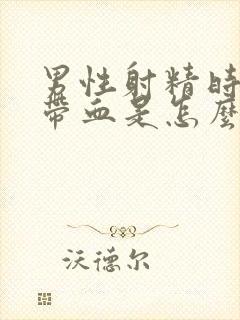 男性射精時
帶血是怎麼
沃德尔